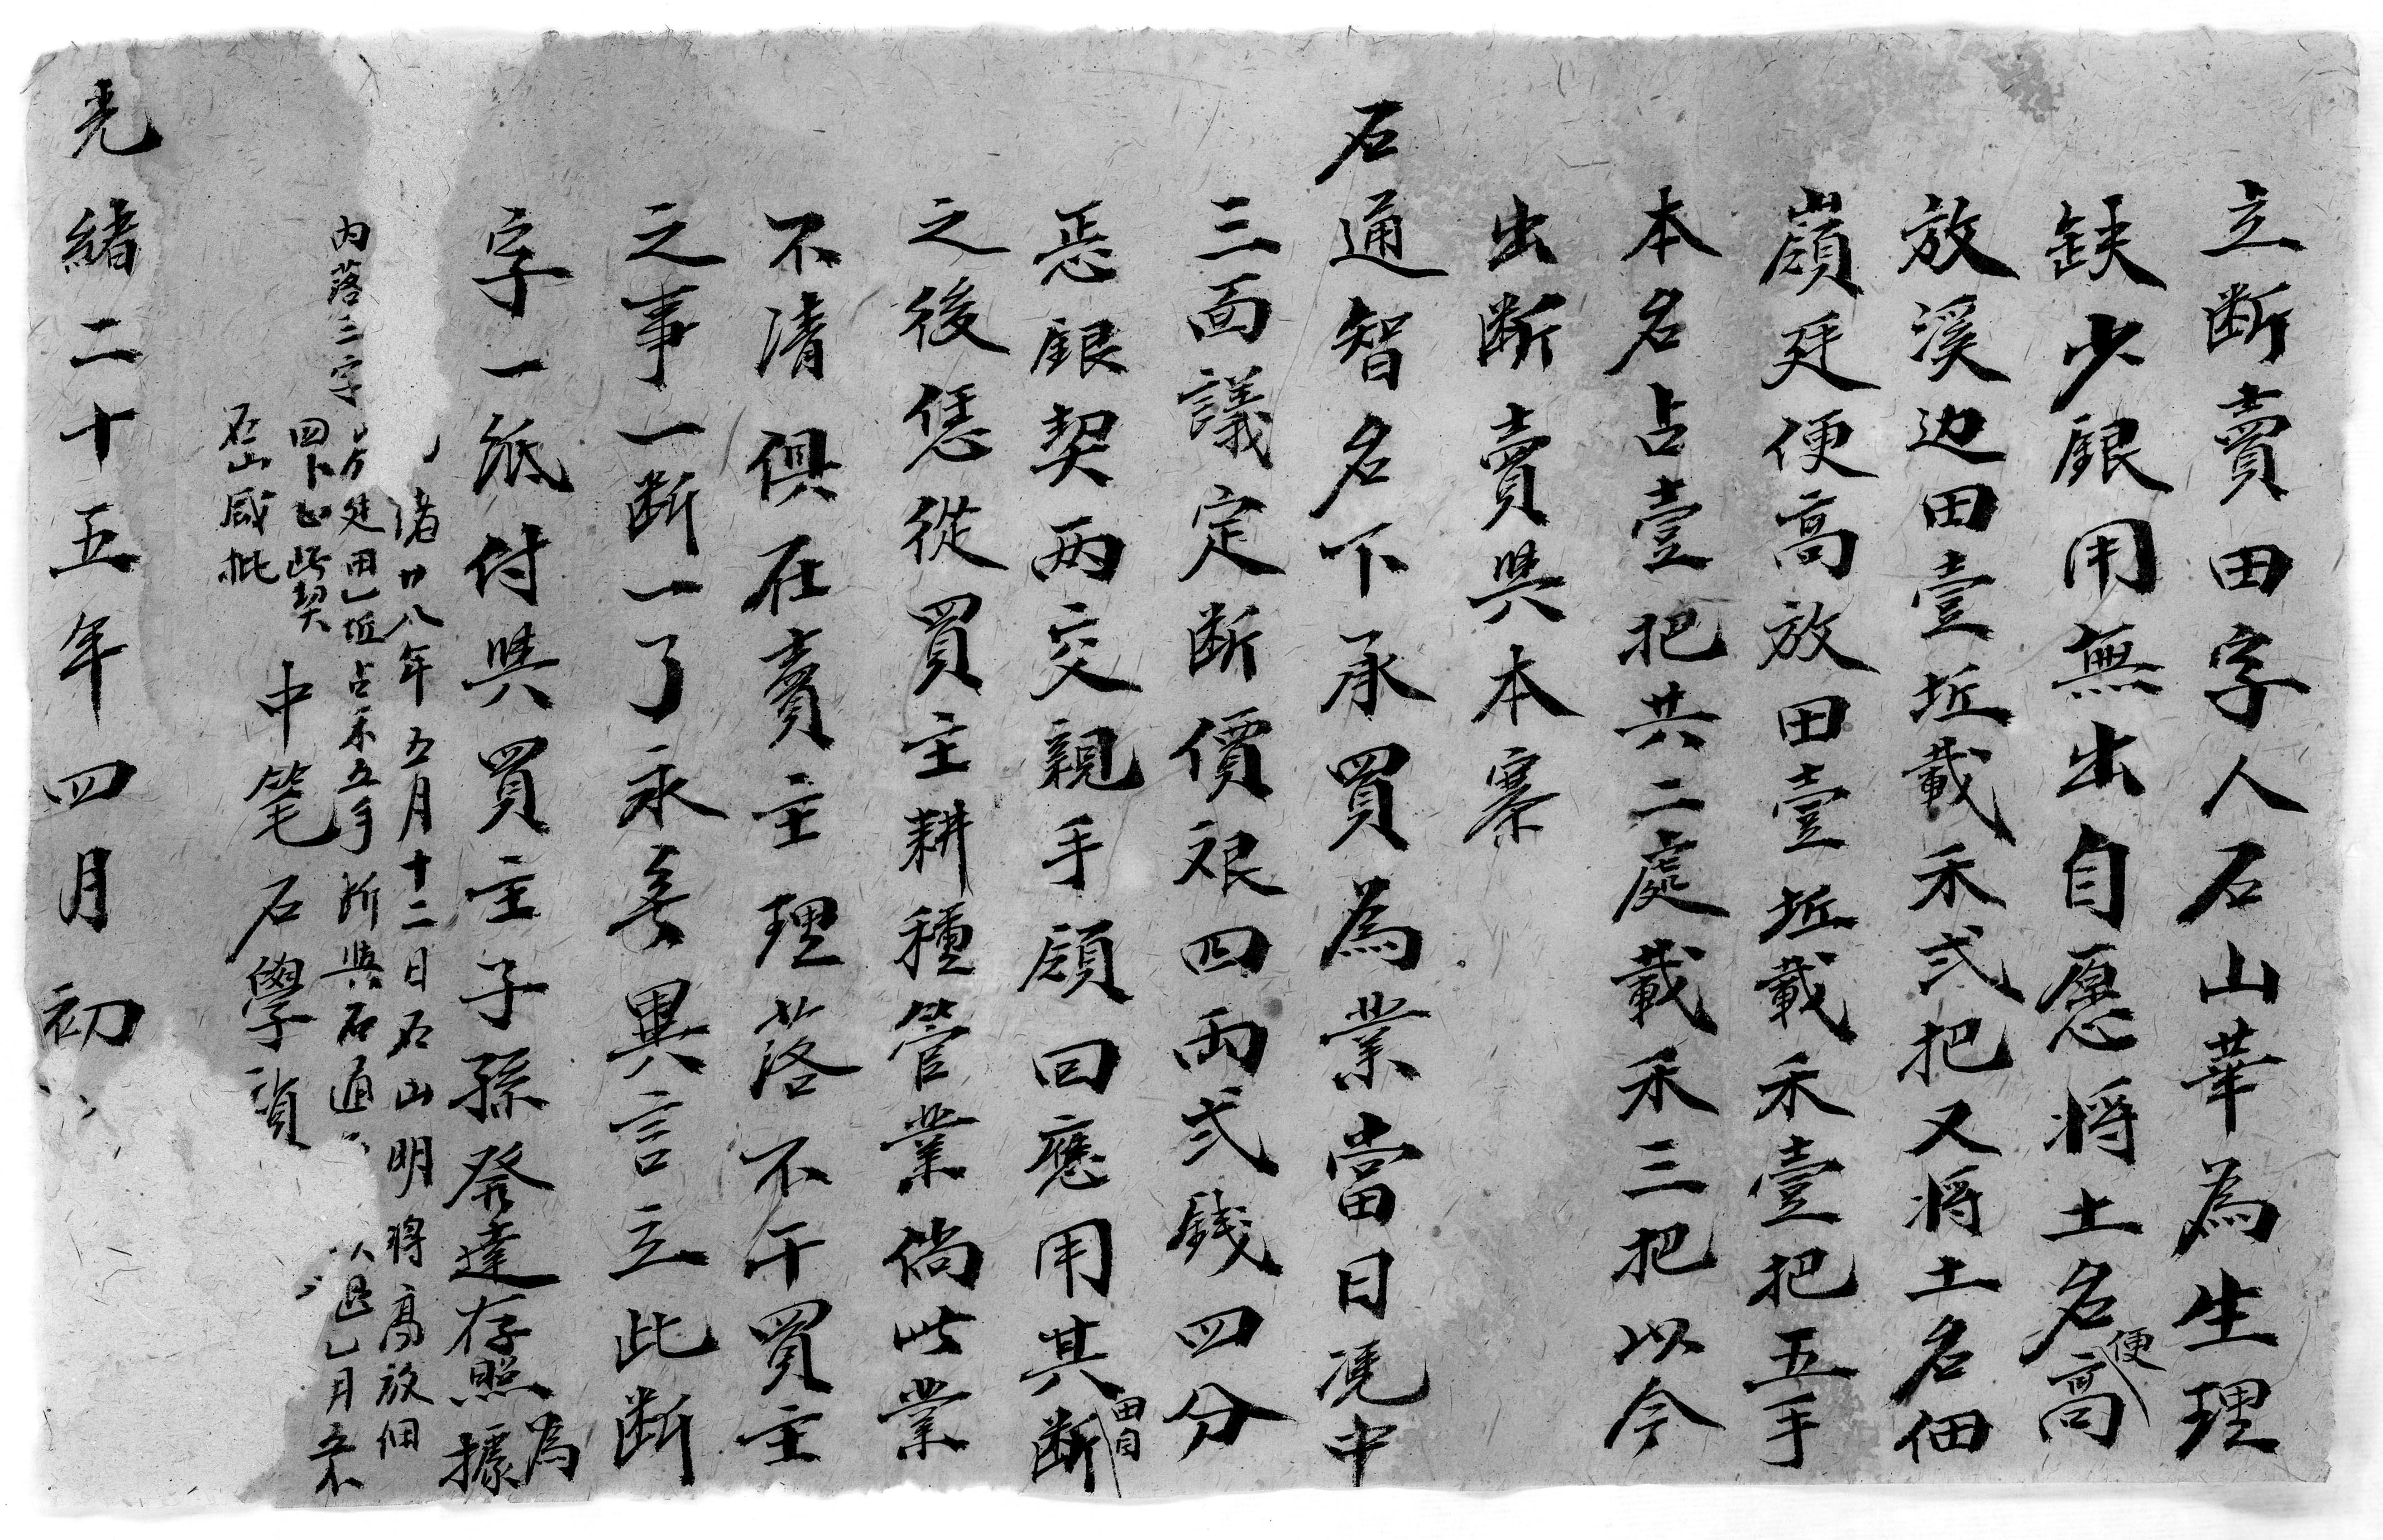 立断賣田字人石山華為生理
缺少銀用無出自愿将土名便高
放溪边田壹坵載禾弍把又将土名佃
嶺廷便高放田壹坵載禾壹把五手
本名占壹把共二處載禾三把以今
出断賣與本寨
石通智名下承買為業當日凴中
三面議定断價艮四両弍銭四分
其銀契両交親手領回應用其断田自
之後恁從買主耕種管業倘此業
不清俱在賣主理落不干買主
之事一断一了永无異言立此断
字一紙付與買主子孫發達存照為據
緒廿八年五月十二日石山明将高放佃
處田乚坵占禾五手断與石通
退乚月
四卜此契
石山咸批
内落三字
中笔石學資
光緒二十五年四月初